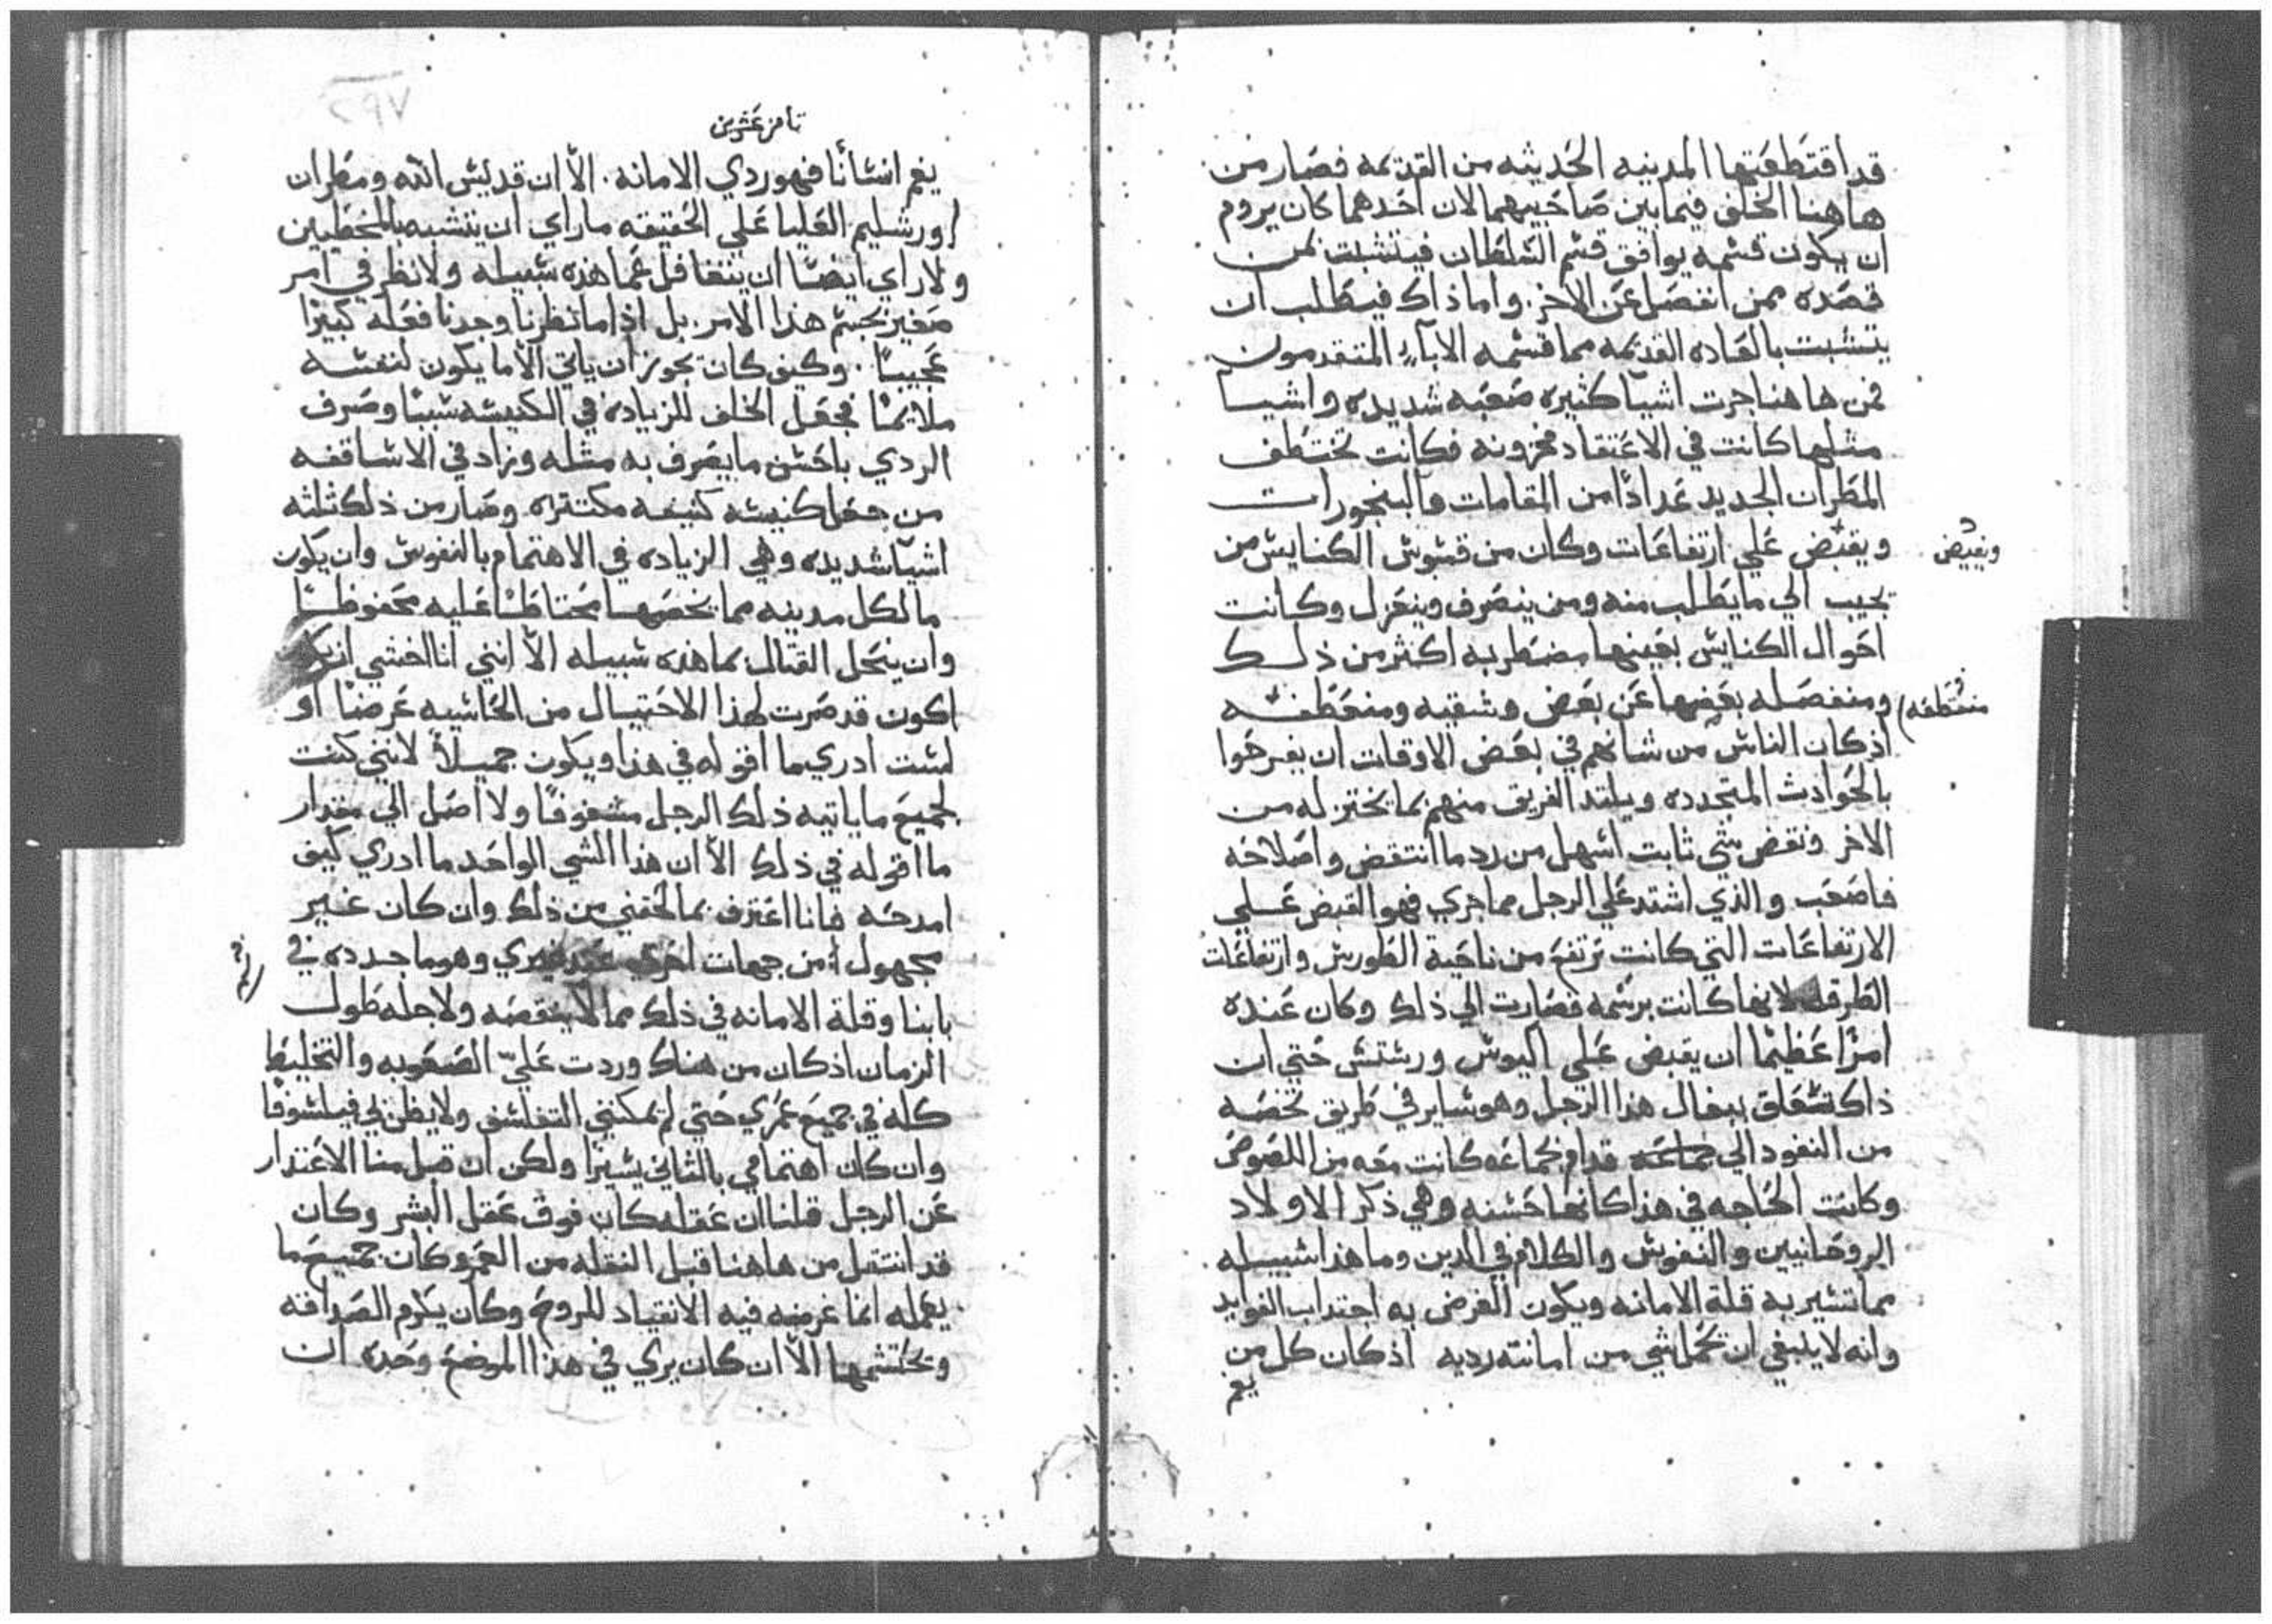 قد اقتطعتها المدينه الحديثه من القديمه فصار من
هاهنا الخلف فيما بين صاحبيهما لان احدهما كان يروم
ان يكون قسمه يوافق قسم السلطان فيتشبت بمن
قصده ممن انفصل عن الاخر. واما ذاك فيطالب ان
يتشبت بالعاده القديمه مما قسمه الابآء المتقدمون
فمن هاهنا جرت اشيآ كثيره صعبه شديده واشيا
مثلها كانت في الاعتقاد مخزونه فكانت تختطف
المطران الجديد عدادًا من المقامات والبنجورات
ويقبض علي ارتفاعات وكان من قسوس الكنايس من
ويقبض
يجيب الي ما يطلب منه ومن ينصرف وينعزل وكانت
احوال الكنايس بعينها مضطربه اكثر من ذلك
ومنفصله بعضها عن بعض وشقيه ومنعطفه
منقطعه
اذ كان الناس من شانهم في بعض الاوقات ان يفرحوا
بالحوادث المتجدده ويلتد الفريق منهم بما يختزله من
الاخر ونقض شي ثابت اسهل من رد ما انتقض واصلاحه
فاصعب والذي اشتد علي الرجل مما جري فهو القبض علي
الارتفاعات التي كانت ترتفع من ناحية الطوريس وارتفاعات
الطرقه لانها كانت برسمه فصارت الي ذلك وكان عنده
امرًا عظيمًا ان يقبض علي اليوس ورستس حتي ان
ذاك تتعلق ببغال هذا الرجل وهو ساير في طريق تخصه
من النفود الي قدام بجماعه كانت معه من اللصوص
وكانت الحاجه في هذا كانها حسنه وهي ذكر الاولاد
الروحانيين والنفوس والكلام في الدين وما هذا سبيله
مما تشير به قلة الامانه ويكون الغرض به اجتداب الفوايد
وانه لا ينبغي ان يحمل شي من امانته رديه اذ كان كل من
يغم
ثامن عشرين
يغم انسانًا فهو ردي الامانه. الّا ان قديس الله ومطران
اورشليم العليا علي الحقيقه ما راي ان يتشبه بالمخطيين
ولا راي ايضًا ان يتغافل عما هذه سبيله ولا نظر في امر
صغير بجسم هذا الامر. بل اذا ما نظرنا وجدنا فعله كبيرًا
عجيبًا. وكيف كان يجوز ان ياتي الا ما يكون لنفسه
ملايمًا فجعل الخلف للزياده في الكنيسه سببًا وصرف
الردي باحسن ما يصرف به مثله وزاد في الاساقفه
من جعل كنيسه كثيفه مكتتره وصار من ذلك ثلثه
اشيّا شديده وهي الزياده في الاهتمام بالنفوس وان يكون
ما لكل مدينه مما يخصها محتاطًا عليه محفوظًا
وان ينحل القتال بما هذه سبيله الّا انني انا اخشي ان
اكون قد صرت لهذا الاحتيال من الحاشيه عرضًا او
لست ادري ما اقوله في هذا ويكون جميلًا لانني كنت
لجميع ما ياتيه ذلك الرجل مشغوفًا ولا اصل الي مقدار
ما اقوله في ذلك الّا ان هذا الشي الواحد ما ادري كيف
امدحه فانا اعترف بما لحقني من ذلك وان كان غير
مجهول من جهات اخري عند غيري وهو ما جدده في
بابنا وقلة الامانه في ذلك مما لا ينقصه ولا جله طول
الزمان اذ كان من هناك وردت عليّ الصعوبه والتخليط
كله في جميع عمري حتي لم يمكنني التفلسف ولا يظن لي فيلسوفًا
وان كان اهتمامي بالثاني يسيرًا ولكن ان قبل منا الاعتدار
عن الرجل قلنا ان عقله كان فوق عقل البشر وكان
قد انتقل من هاهنا قبل النقله من العمر وكان جميع ما
يعمله انما غرضه فيه الانقياد للروح وكان يكرم الصداقه
ويحتشمها الّا ان كان يري في هذا الموضع وحده ان